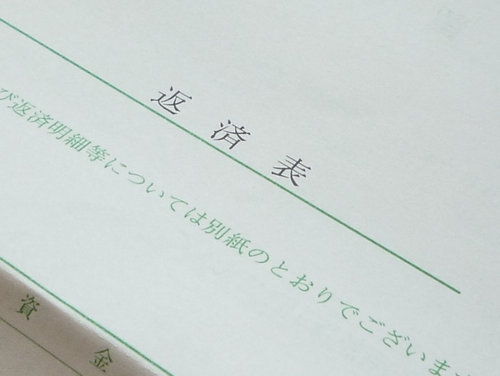 返済表
び返済明細等については別紙のとおりでございます
資金